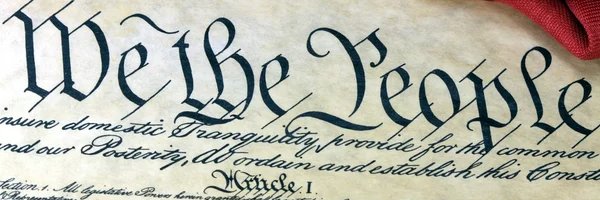 We the People
insure domestic Tranquility, provide for the common
and our Posterity, do ordain and establish this Const
Article I.
Section 1. All legislative Powers herein